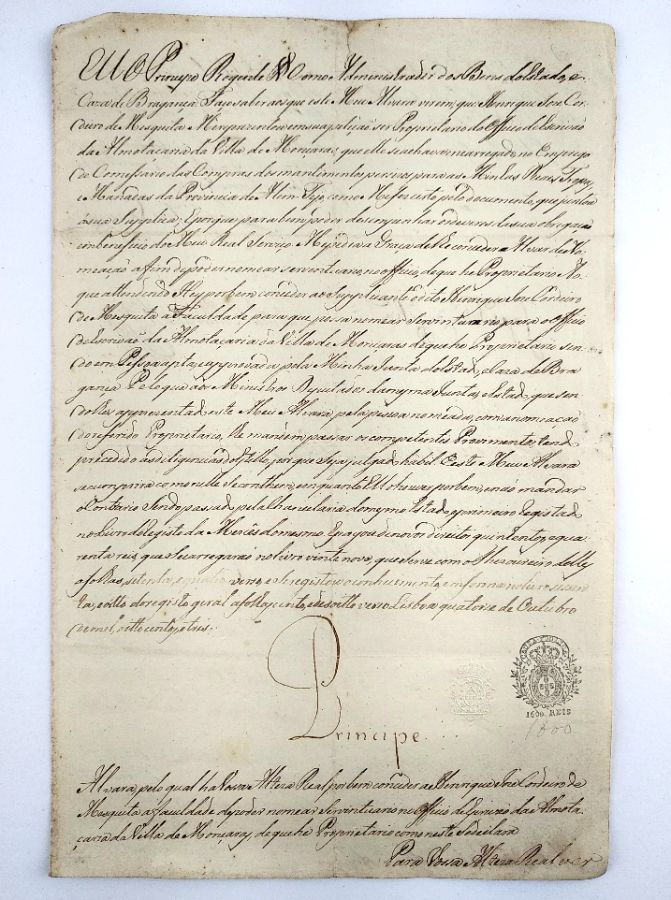 EU O Principe Regente Como Administrador dos Bens do Estado, e
Caza de Bragança Faço saber aos que este Meu Alvara virem, que Henrique Joze Cor-
deiro de Mesquita Me reprezentou em sua suplica ser Proprietario do Officio de Escrivão
da Almotaçaria da Villa de Monçaras, que elle se achava encarregado, no Emprego
de Comessario das Compras dos mantimentos precizos para as Minhas Reaes
e Manadas da Provincia de Alem-Tejo, como Me fes certo pelo documento, que juntou
á sua Supplica; E porque para bem poder desempenhar os deveres da sua obrigação
em beneficio do Meu Real Serviço Me pedira a Graça de lhe conceder Alvará de No-
meação a fim de poder nomear serventuario, no officio, de que he Proprietario. Ao
que attendendo Hey por bem conceder ao Supplicante o dito Henrique Joze Cordeiro
de Mesquita a Faculdade para que possa nomear Serventuario para o Officio
de Escrivão da Almotaçaria da Villa de Monçaras de que he Proprietario sen-
do em Pessoa apta, e approvada pela Minha Junta do Estado, e Caza de Bra-
gança Pelo que aos Ministros Deputados da mesma Junta, e Estado, que sen-
do lhes apprezentado este Meu Alvará, pela pessoa nomeada, com a nomeação
do referido Proprietario, lhe mandem passar os competentes Provimentos, tendo
precedido as deligencias do Estillo, por que seja julgado habil. E este Meu Alvará
se cumprirá como nelle se conthem, enquanto Eu o houver por bem, e não mandar
o Contrario Sendo passado pela Chancelaria do mesmo Estado, e primeiro Registado
no Livro do Registo das Mercês do mesmo. E pagou de novos direitos quinhentos, e qua-
renta reis, que se carregarão no Livro vinte nove, que serve com o Thezoureiro delles
a folhas, setenta, e quatro verso e se registou o conhecimento, em forma no Livro sessen-
ta, e oitto do registo geral a folhas cento, e dezoitto verso Lisboa quatorze de Outubro
de mil, oitto centos, e tres.
Principe
1600 REIS
1600
Alvara, pelo qual ha Vossa Alteza Real por bem conceder a Henrique Joze Cordeiro de
Mesquita a faculdade de poder nomear Serventuario no Officio de Escrivão da Almota-
çaria da Villa de Monçaraz, de que he Proprietario como neste se declara
Para Vossa Alteza Real ver